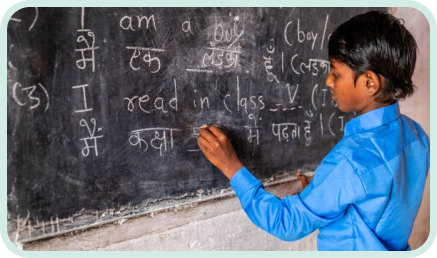 I am a boy (boy/
मैं एक लड़का हूँ। (लड़का
(3) I read in class V (I
मैं कक्षा में पढ़ता हूँ। (